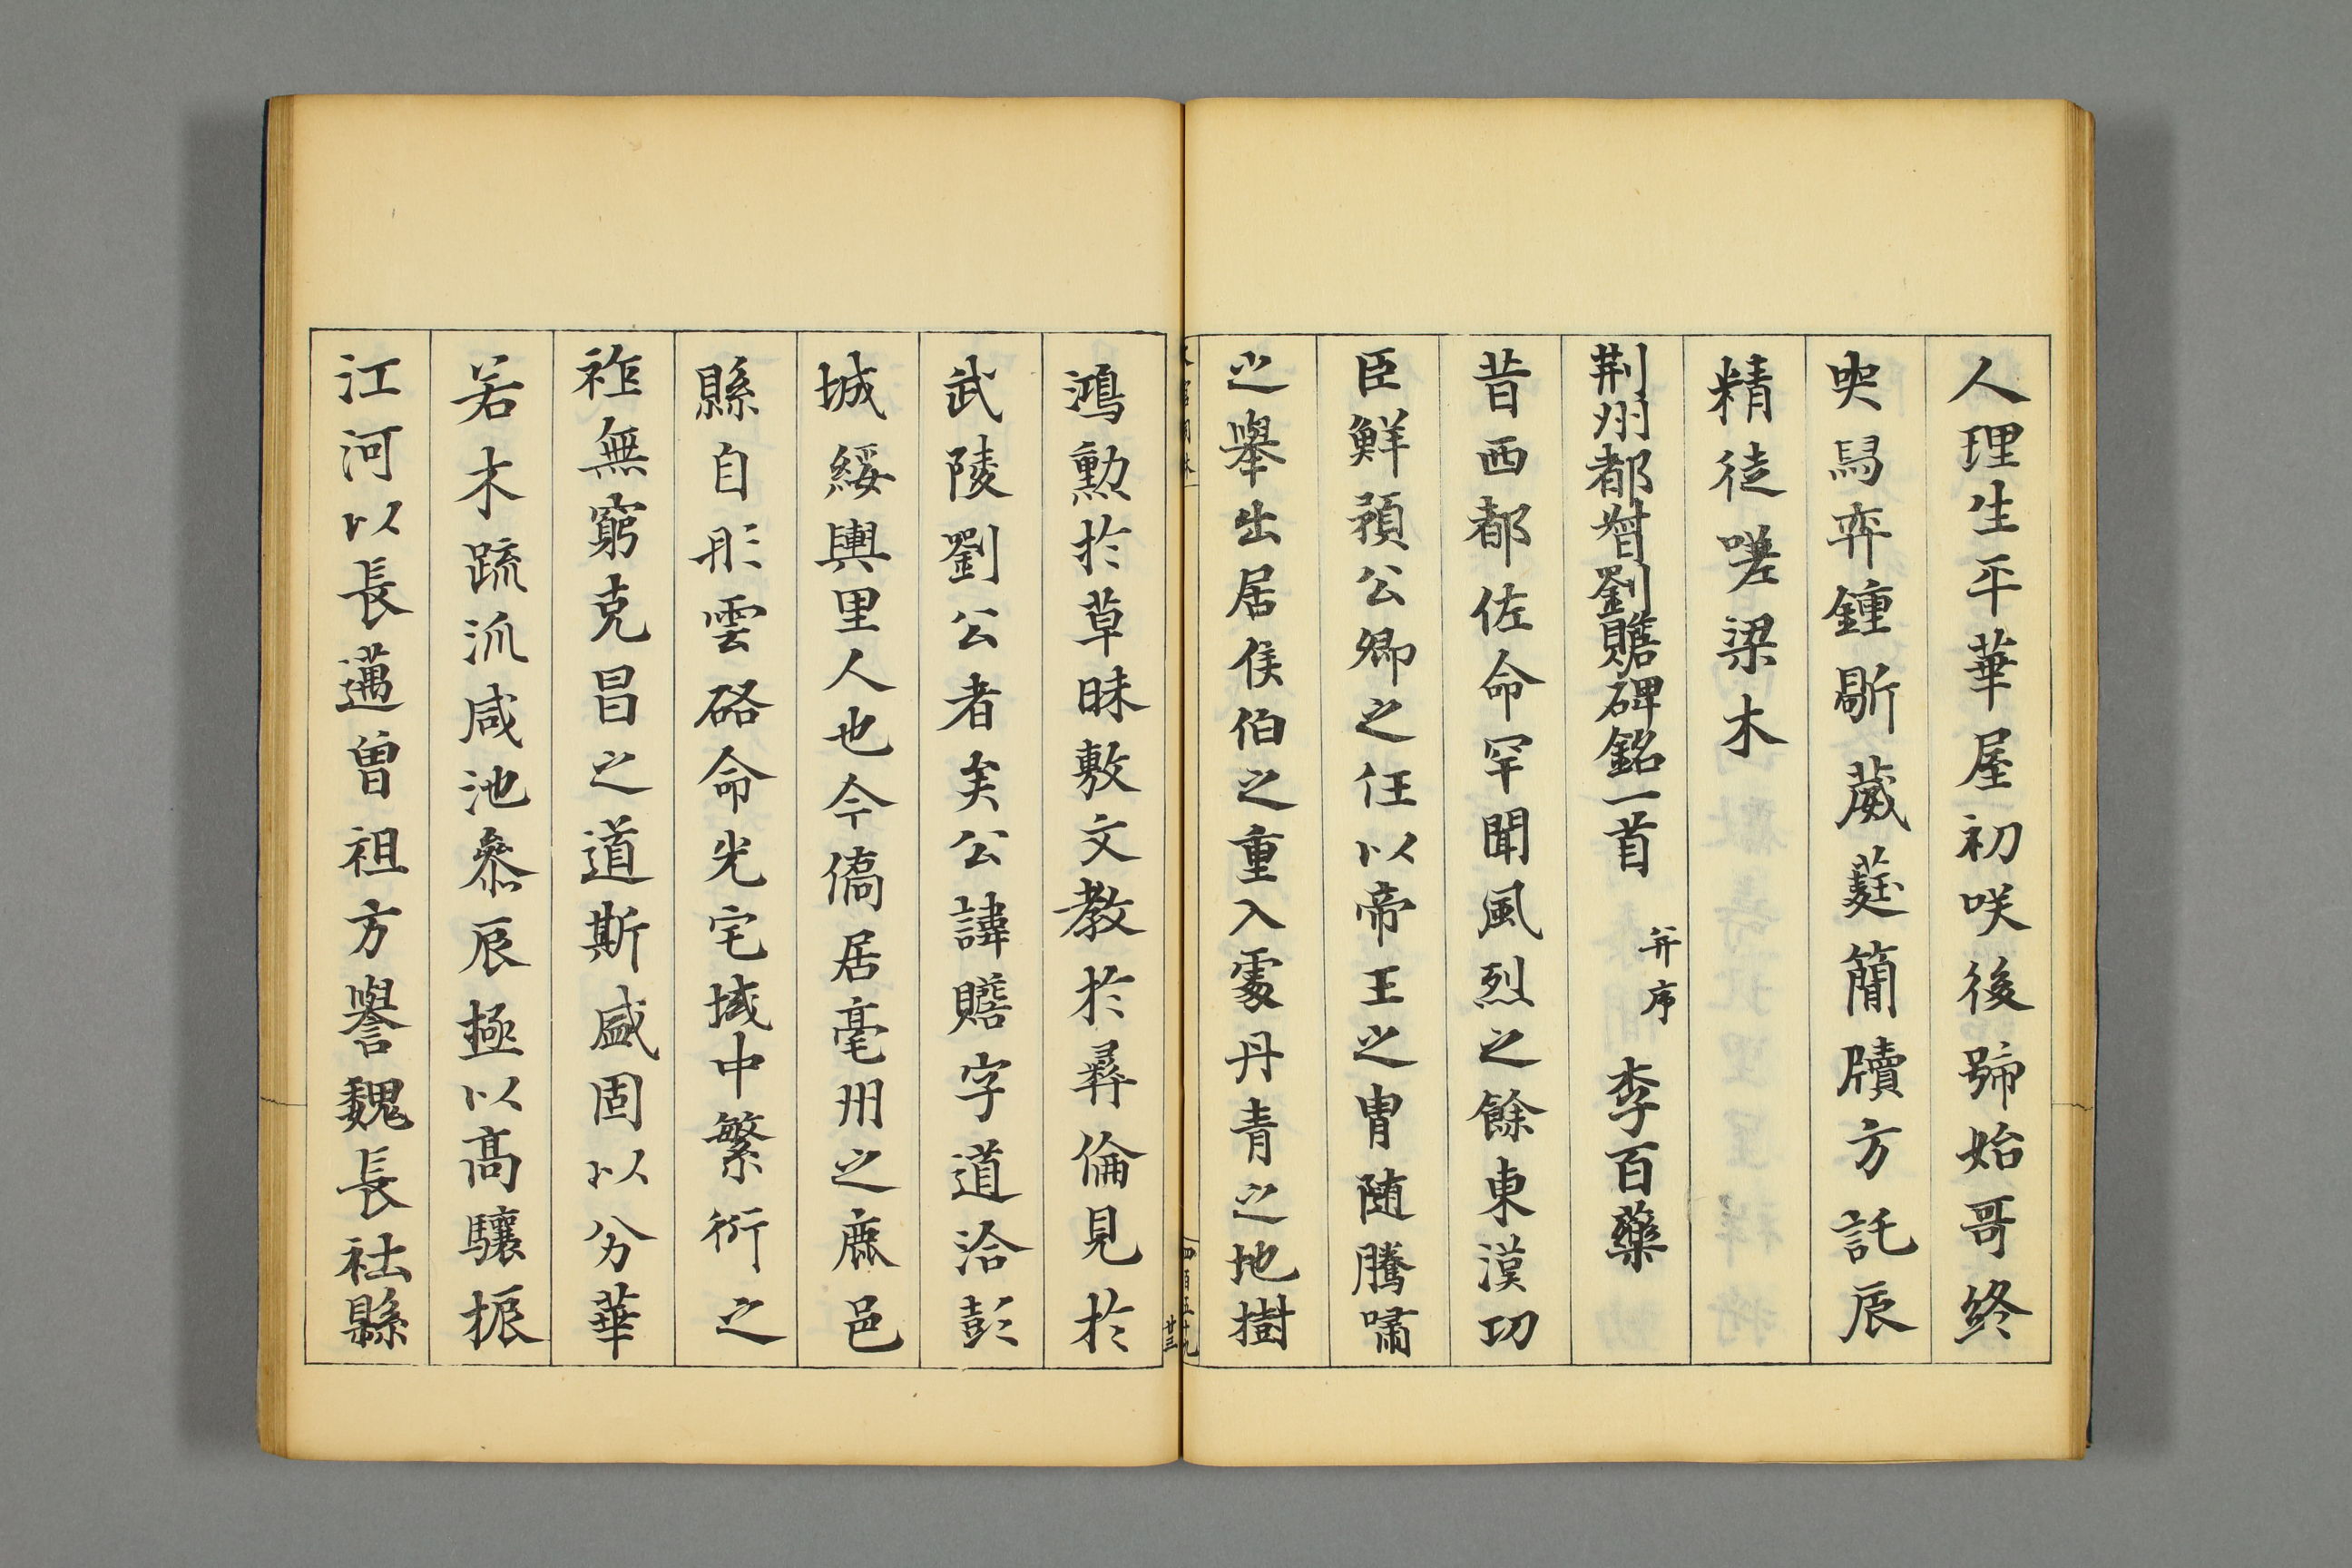 人理生平華屋初咲後蹄始哥終
㖈舄弈鍾斸葳莛簡牘方託辰
精徒嗟梁木
荆州都督劉贍碑銘一首 并序 李百藥
昔西都佐命罕聞風烈之餘東漢功
臣鮮預公卿之任以帝王之胄随騰嘯
之舉出居侯伯之重入處丹青之地樹
四百五十九
廿三
鴻勲於草昧敷文教於彛倫見於
武陵劉公者矣公諱贍字道洽彭
城綏輿里人也今僑居亳州之鹿邑
縣自彤雲硌命光宅域中繁衍之
祚無窮克昌之道斯盛固以分華
若木疏派咸池叅辰極以髙驤振
江河以長邁曽祖方譽魏長社縣